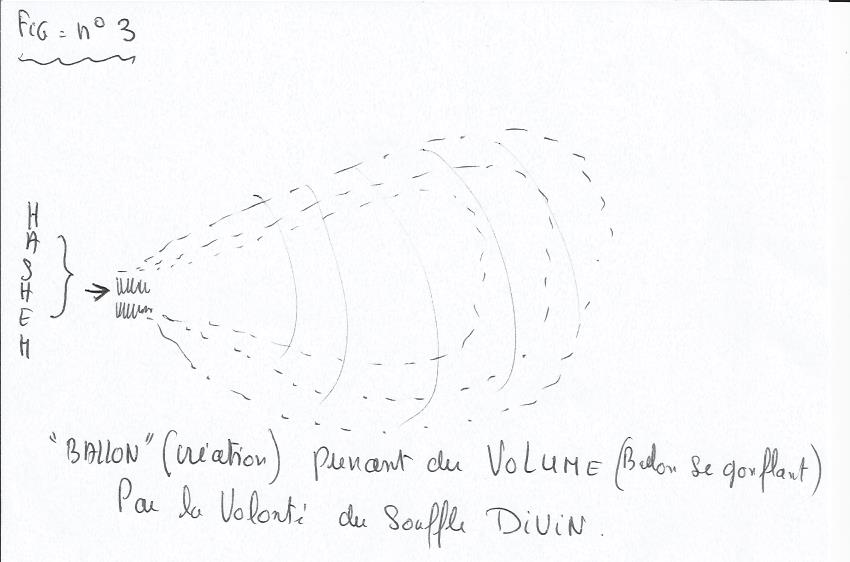 FIG = n° 3
HASHEM
"BALLON" (création) prenant du VOLUME (Ballon se gonflant)
Par la Volonté du Souffle DIVIN.